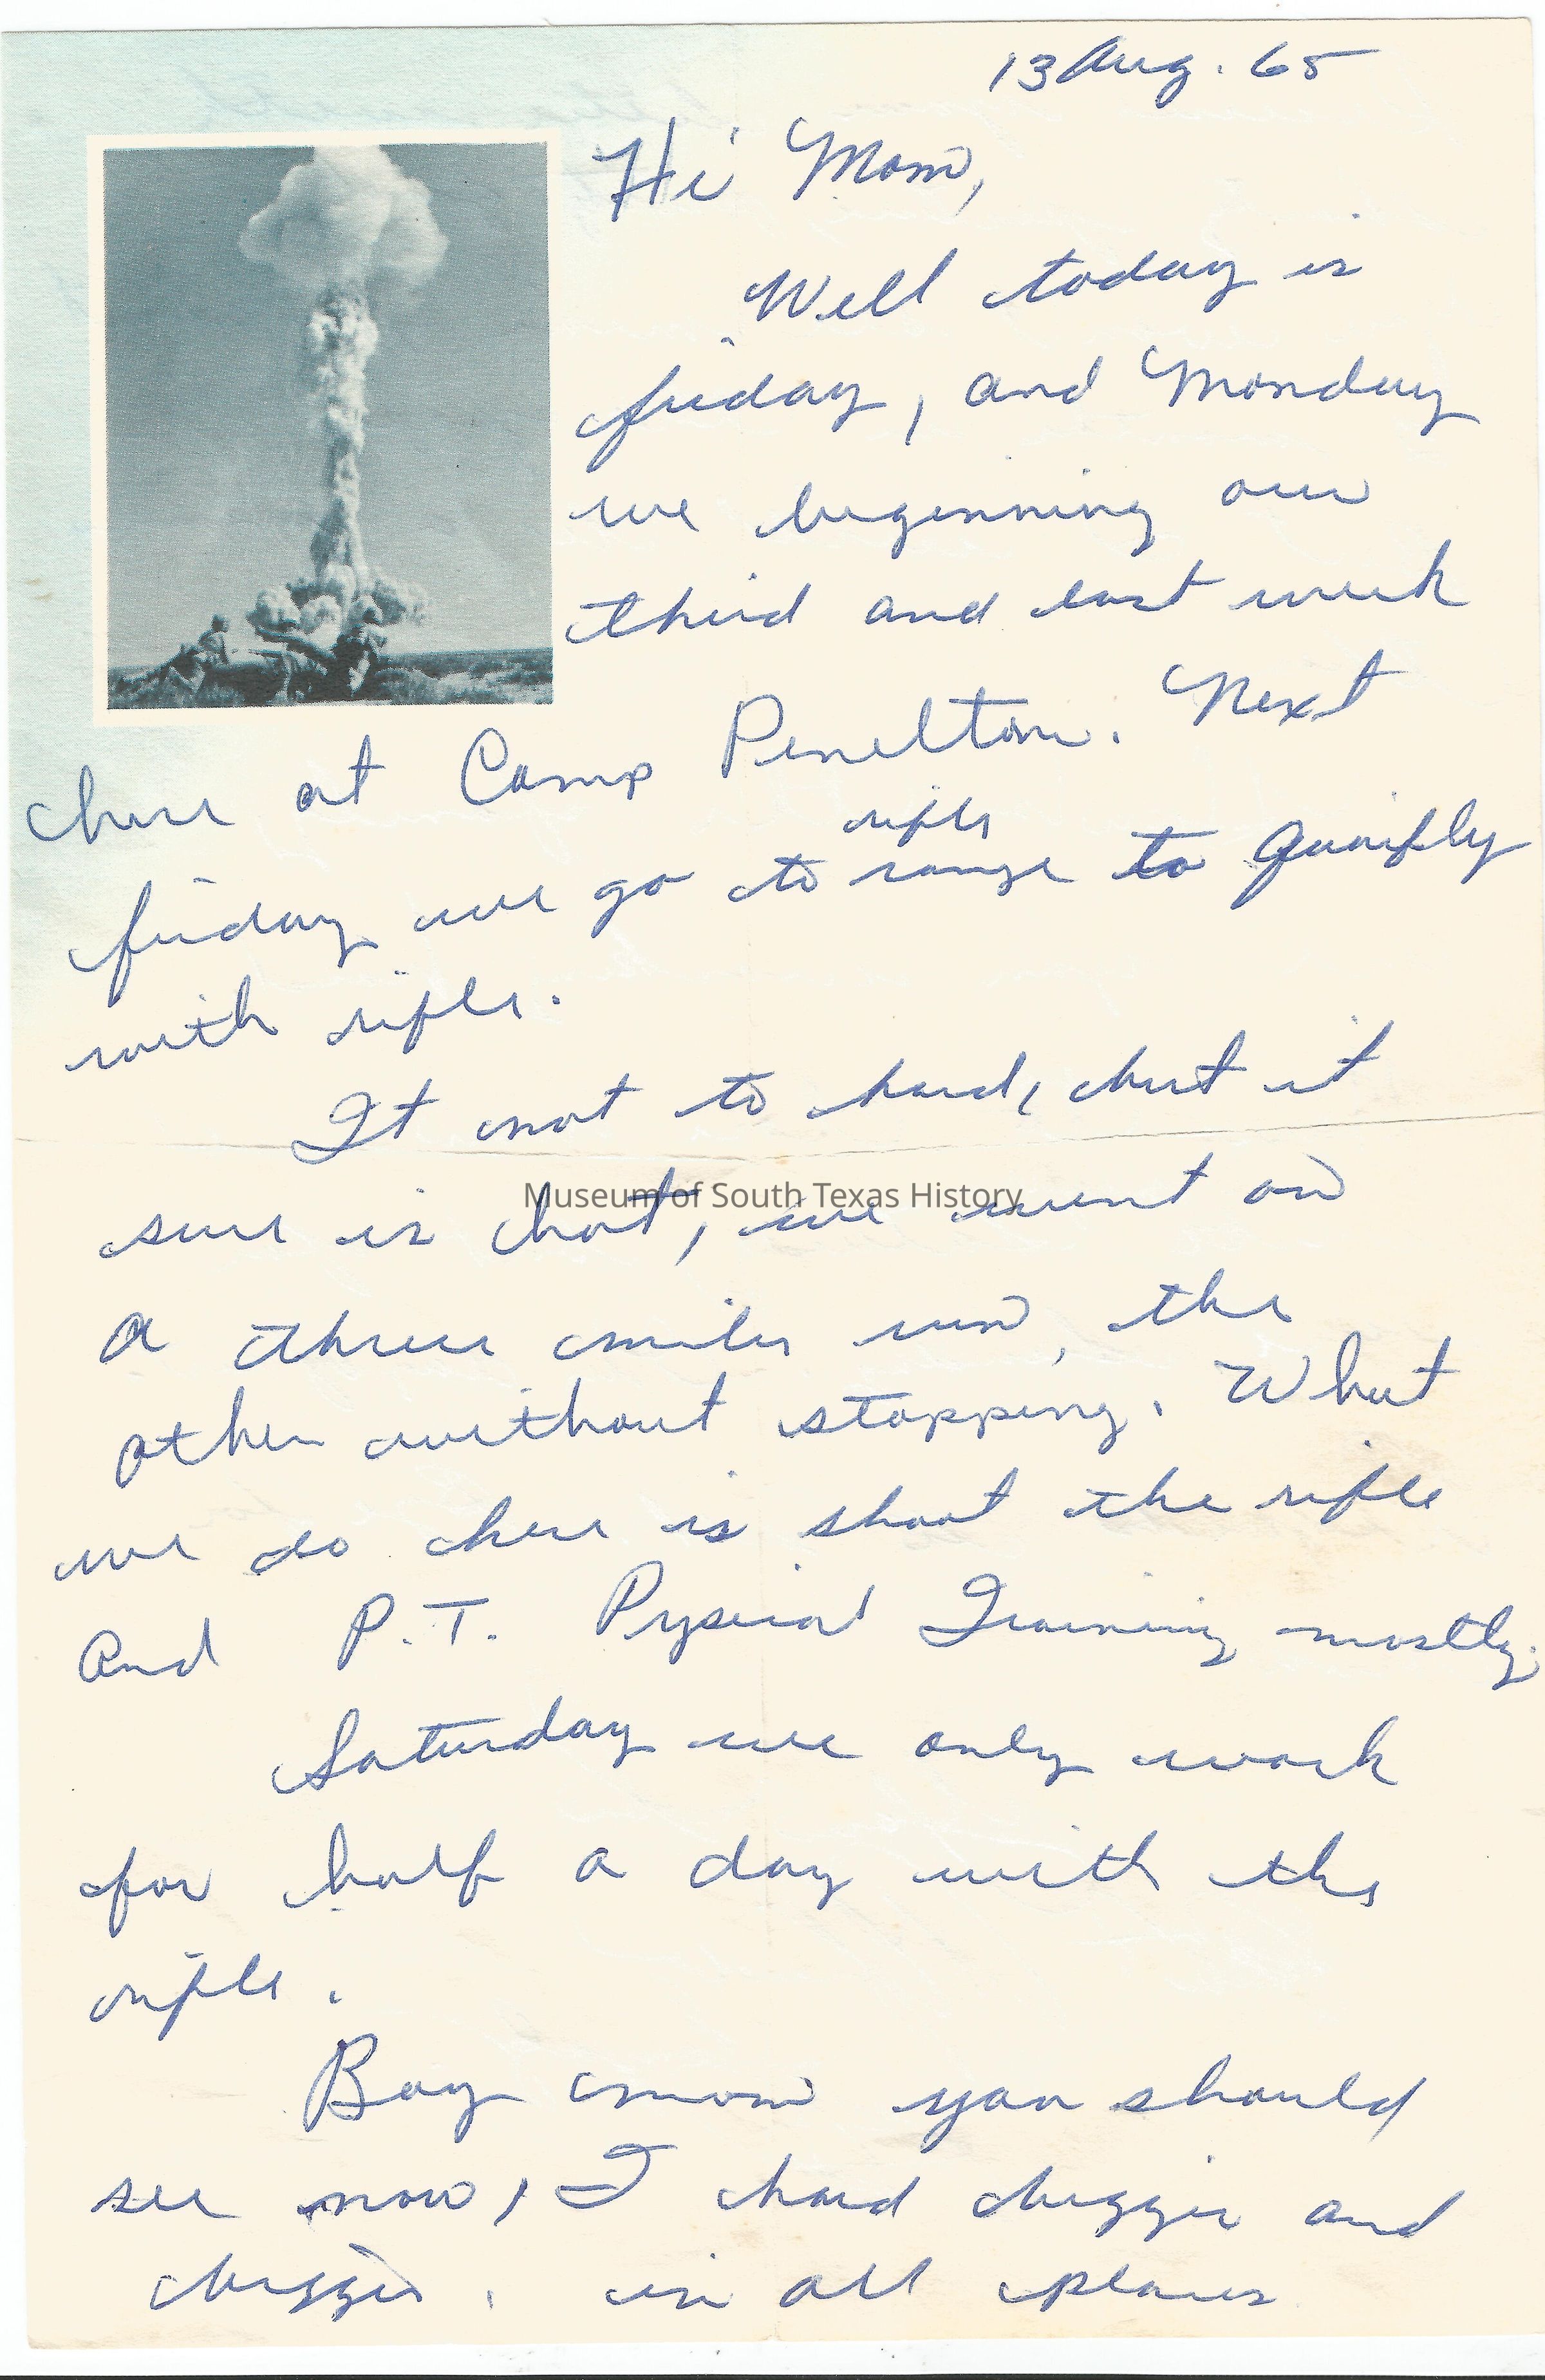 13 Aug. 65
Hi Mom,
Well today is
friday, and Monday
we beginning our
third and last week
here at Camp Penelton. Next
rifle
friday we go to range to quaifly
with rifle.
It not to hard, but it
sure is hot, we went on
Museum of South Texas History
a three miles run, the
other without stopping. What
we do here is shoot the rifle
And P.T. Pysical Training mostly.
Saturday we only work
for half a day with the
rifle.
Boy mom you should
see now, I hard bigger and
bigger. in all places